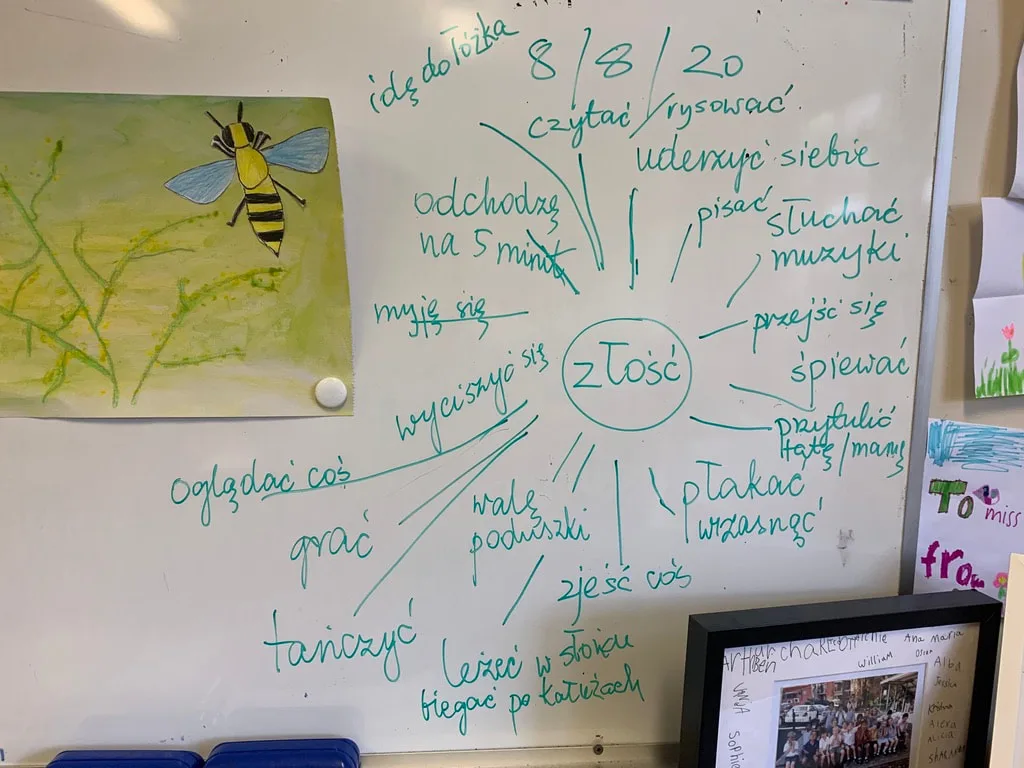 idę do łóżka
8/8/20
czytać/rysować
uderzyć siebie
odchodzę
na 5 minut
pisać
słuchać
muzyki
myję się
przejść się
złość
śpiewać
wyciszyć się
przytulić
tatę/mamę
oglądać coś
płakać
wrzasnąć
walę
poduszki
grać
zjeść coś
tańczyć
leżeć w słońcu
biegać po kałużach
To
miss
from
Ben
William
Ana Maria
Sophie